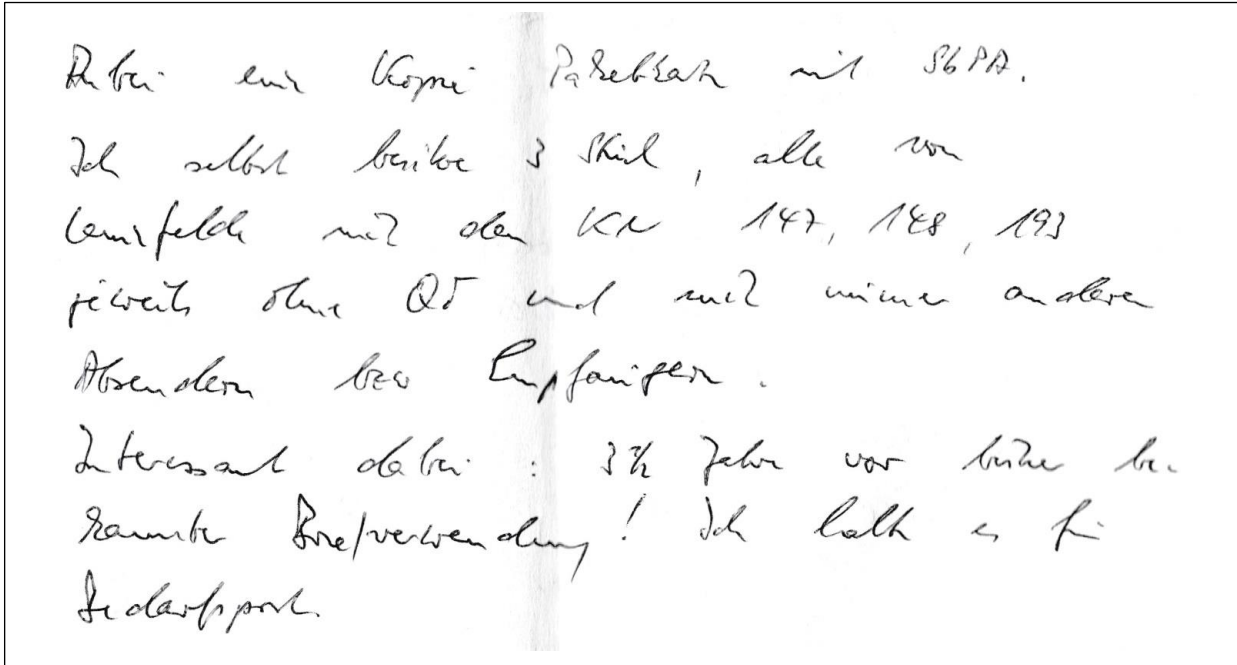 Anbei eine Kopie Paketkarte mit SbPA.
Ich selbst besitze 3 Stück, alle von
mit den KN 147, 148, 193
jeweils ohne und mit immer anderen
Absendern bzw Empfängern.
Interessant dabei: 3½ Jahre vor bisher be-
kannter Briefverwendung! Ich halte es für
Bedarfspost.